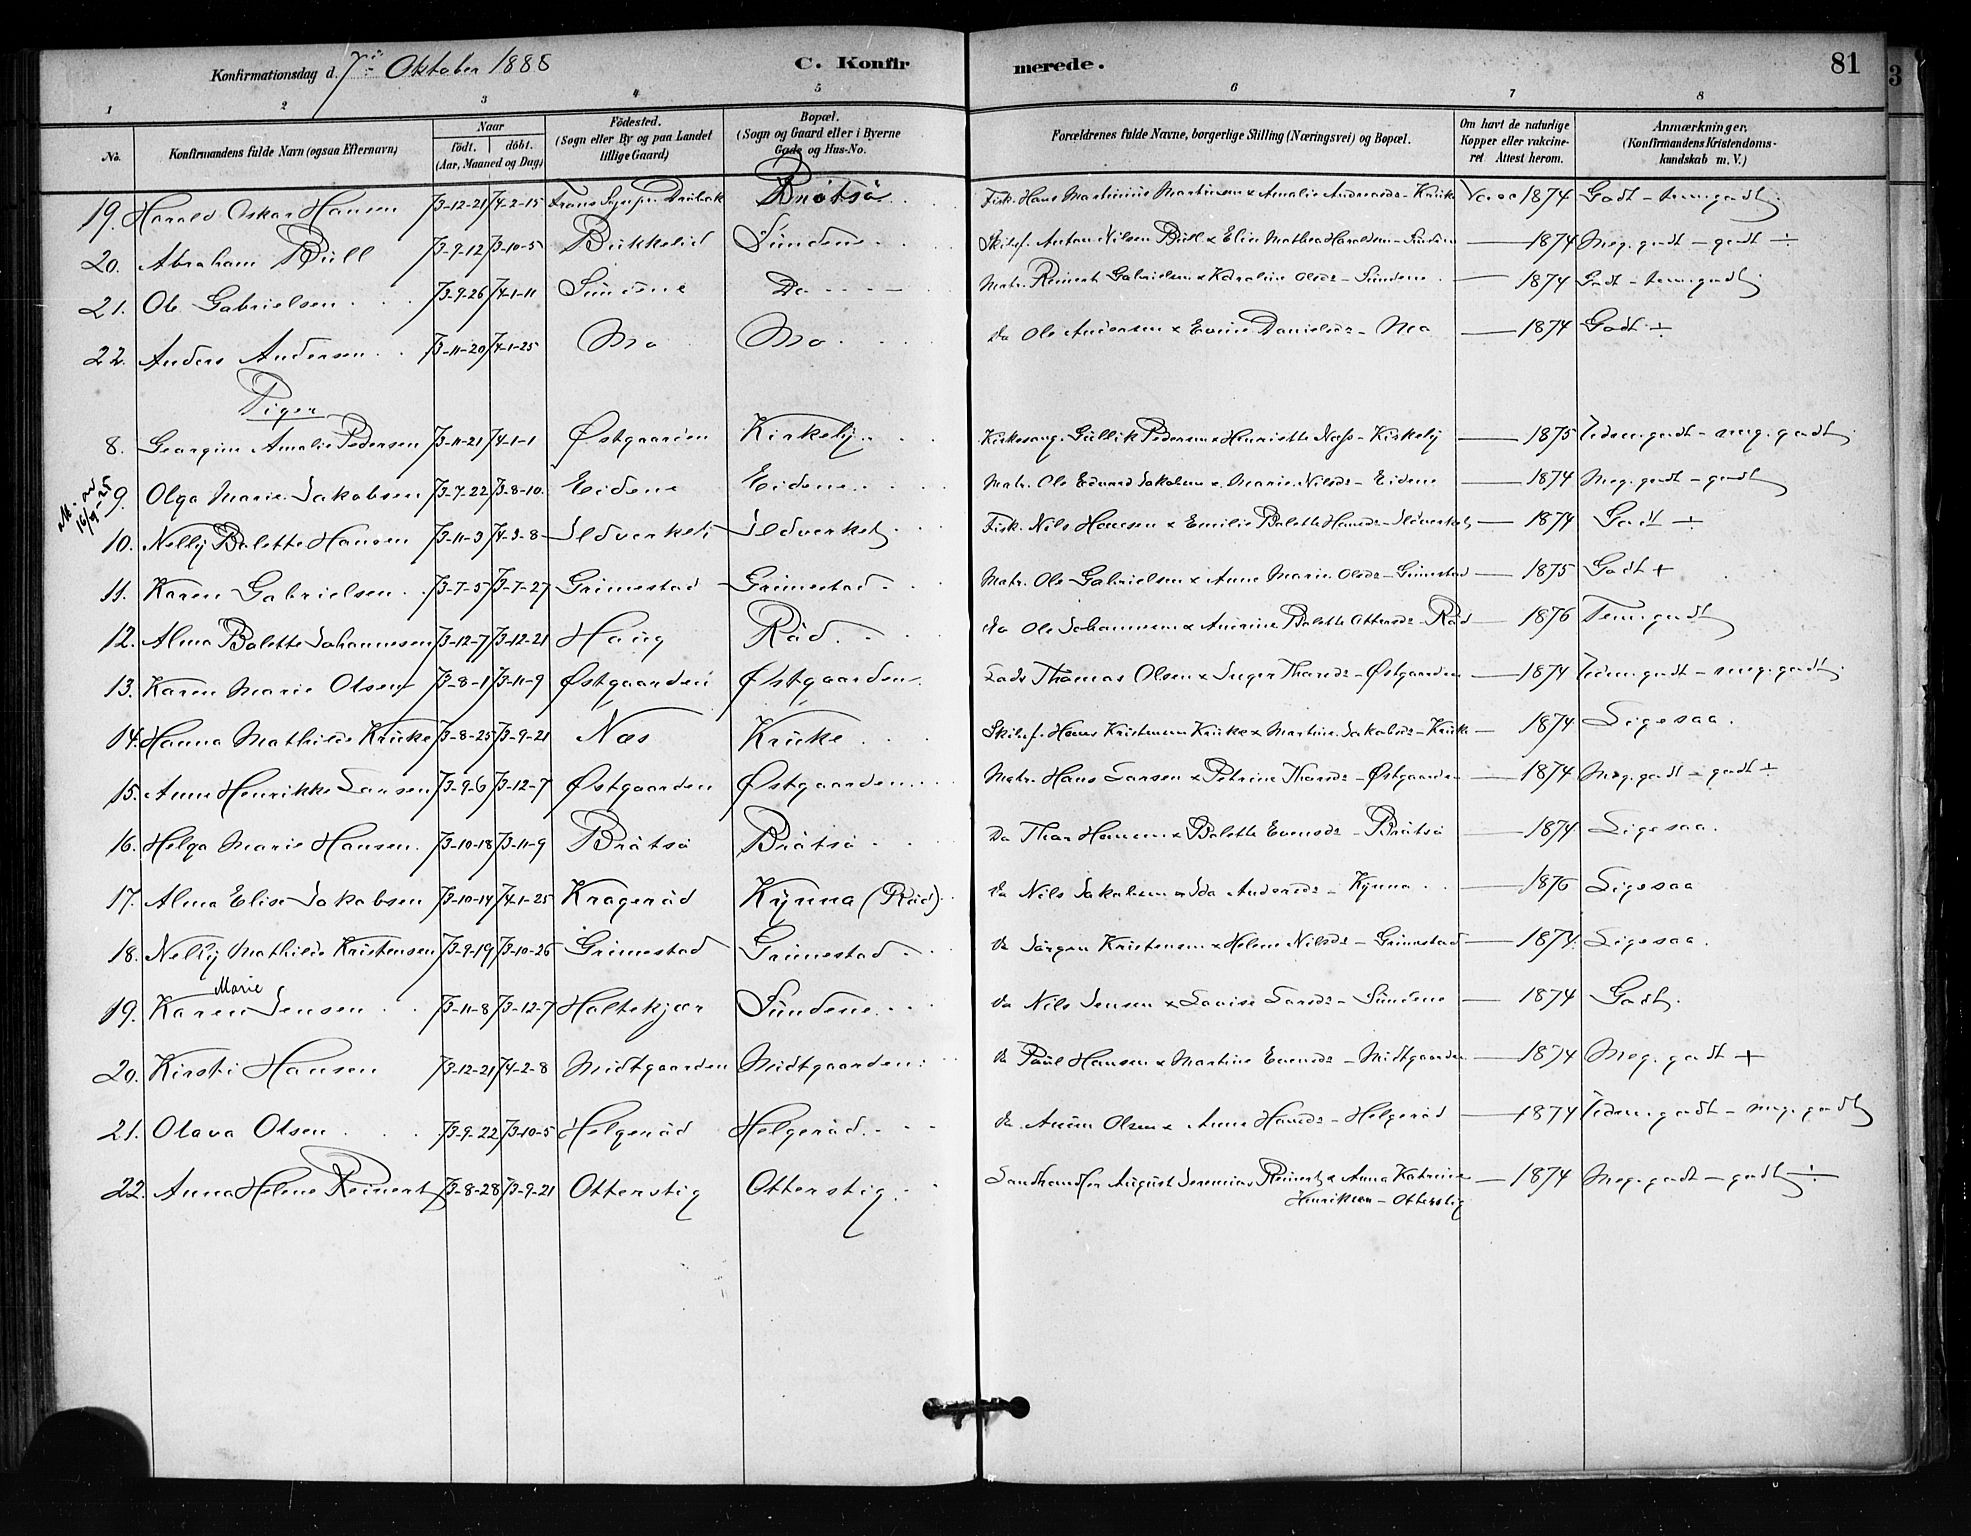 Konfirmationsdag d. 7de Oktober 1888 C. Konfirmerede. 81
1 2 3 4 5 6 7 8
No. Konfirmandens fulde Navn (ogsaa Efternavn) Naar födt. döbt. (Aar, Maaned og Dag) Födested. (Sogn eller By og paa Landet tillige Gaard) Bopæl. (Sogn og Gaard eller i Byerne Gade og Hus-No. Forældrenes fulde Navne, borgerlige Stilling (Næringsvei) og Bopæl. Om havt de naturlige Kopper eller vakcineret. Attest herom. Anmærkninger. (Konfirmandens Kristendomskundskab m. V.)
19. Harald Oskar Hansen 73-12-21 74-2-15 Drøbak Brøtsø Fisk. Hans Martinius Martinsen x Amalie Andreasd. - Krüke Vacc 1874 Godt - tem. godt
20. Abraham Büll 73-9-12 73-10-5 Bükkelid Sündene Skibsf. Anton Nilsen Büll x Elin Mathea Haraldsen - Sündene — 1874 Meg. godt - godt ÷
21. Ole Gabrielsen 73-9-26 74-1-11 Sündene Do Matr. Reinert Gabrielsen x Karoline Olsd. - Sündene — 1874 Godt - tem. godt
22. Anders Andersen 73-11-20 74-1-25 Mo Mo Do Ole Andersen x Danielsd. - Mo — 1874 Godt ÷
Piger
8. Georgine Amalie Pedersen 73-11-21 74-1-1 Østgaarden Kirkeby Kirkesang. Güllik Pedersen x Henriette Næss - Kirkeby — 1875 Udm. godt - meg. godt
9. Olga Marie Jakobsen 73-7-22 73-8-10 Eidene Eidene Matr. Ole Edvard Jakobsen x Marie Nilsd. - Eidene — 1874 Meg. godt - godt
10. Nelly Bolette Hansen 73-11-3 74-3-8 Ildverket Ildverket Fisk. Nils Hansen x Emilie Bolette Hansd. - Ildverket — 1874 Godt ÷
11. Karen Gabrielsen 73-7-5 73-7-27 Grimestad Grimestad Matr. Ole Gabrielsen x Anne Marie Olsd. - Grimestad — 1875 Godt +
12. Alma Bolette Johannesen 73-12-7 73-12-21 Haug Råd Do Ole Johannesen x Bolette Ottersd. - Råd — 1876 Tem. godt
13. Karen Marie Olsen 73-8-1 73-11-9 Østgaarden Østgaarden Lods Thomas Olsen x Inger Thorsd. - Østgaarden — 1874 Udm. godt - meg. godt
14. Hanna Mathilde Krüke 73-8-25 73-9-21 Næs Krüke Skibsf. Hans Kristensen Krüke x Martine Jakobsd. - Krüke — 1874 Ligesaa.
15. Anne Henrikke Larsen 73-9-6 73-12-7 Østgaarden Østgaarden Matr. Hans Larsen x Petrine Thorsd. - Østgaarden — 1874 Meg. godt - godt ÷
16. Helga Marie Hansen 73-10-18 73-11-9 Brøtsø Brøtsø Do Thor Hansen x Bolette Evensd. - Brøtsø — 1874 Ligesaa.
17. Alma Elise Jakobsen 73-10-14 74-1-25 Kragerød Kynna (Råd) Do Nils Jakobsen x Ida Andersd. - Kynna — 1876 Ligesaa
18. Nelly Mathilde Kristensen 73-9-19 73-10-26 Grimestad Grimestad Do Jørgen Kristensen x Helene Nilsd. - Grimestad — 1874 Ligesaa.
19. Karen Marie Jensen 73-11-8 73-12-7 Holtekjær Sündene Do Nils Jensen x Lovise Larsd. - Sündene — 1874 Godt
20. Kirsti Hansen 73-12-21 74-2-8 Midtgaarden Midtgaarden Do Paul Hansen x Martine Evensd. - Midtgaarden — 1874 Meg. godt +
21. Olava Olsen 73-9-22 73-10-5 Helgerød Helgerød Do Olsen x Anne Hansd. - Helgerød — 1874 Udm. godt - meg. godt
22. Anna Helene Reinert 73-8-28 73-9-21 Otterstig Otterstig Landhandler August Jeremias Reinert x Anna Katrine Henriksen - Otterstig — 1874 Meg. godt - godt ÷